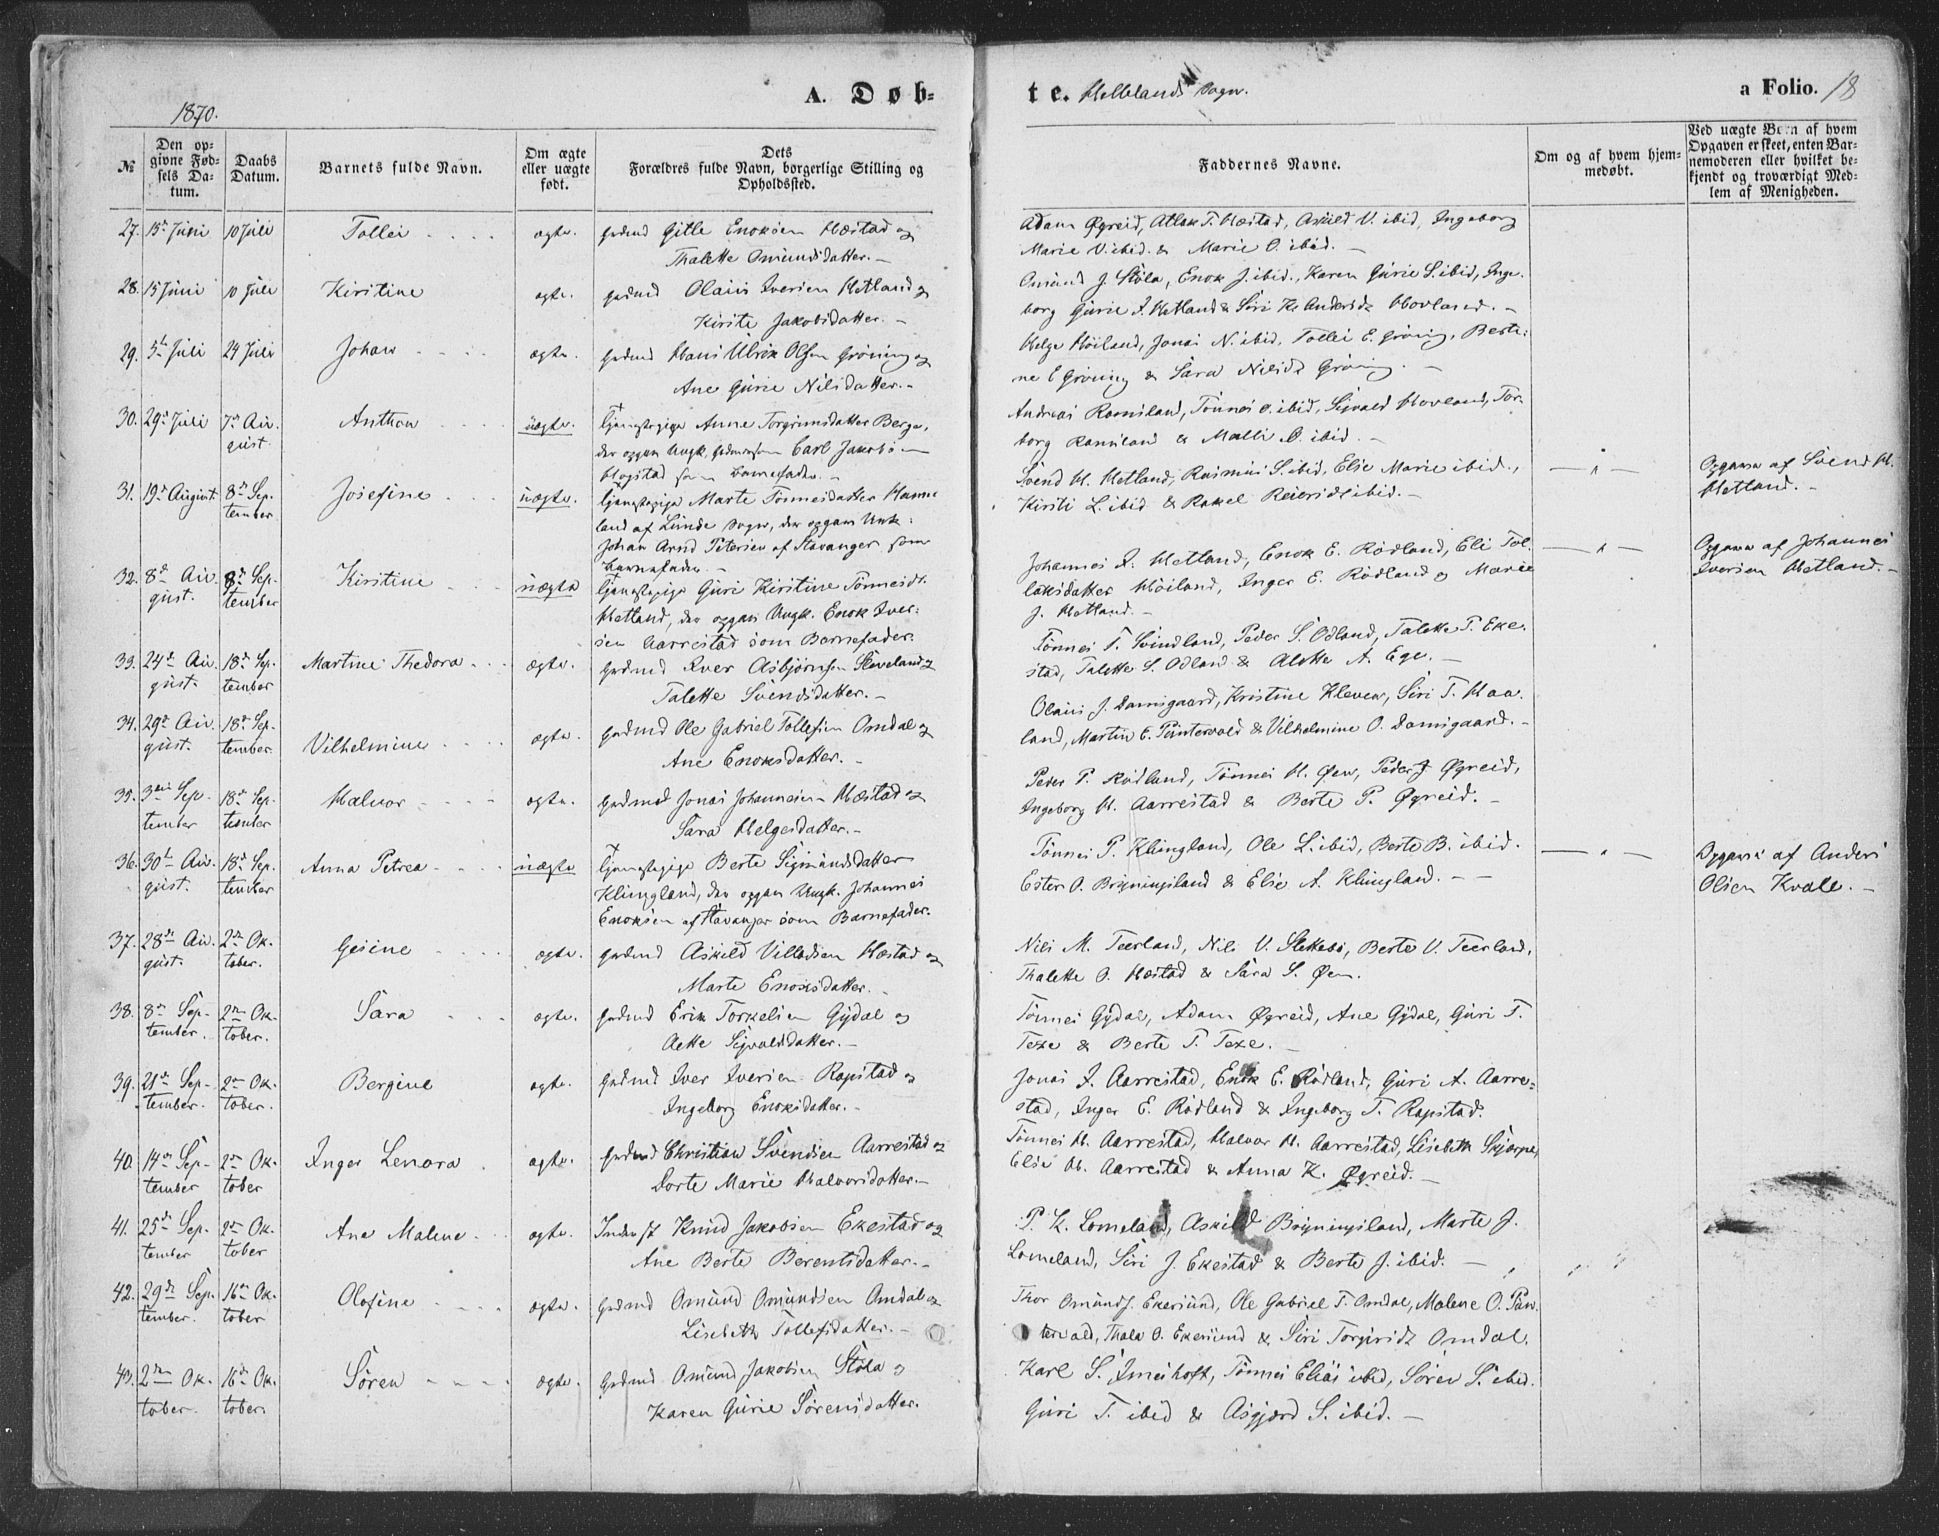 1870.
A. Døb-
te. Hellelands Sogn.
a Folio. 18
№
Den opgivne Fødsels Datum.
Daabs Datum.
Barnets fulde Navn.
Om ægte eller uægte født.
Dets Forældres fulde Navn, borgerlige Stilling og Opholdssted.
Faddernes Navne.
Om og af hvem hjemmedøbt.
Ved uægte Børn af hvem Opgaven er skeet, enten Barnemoderen eller hvilket bekjendt og troværdigt Medlem af Menigheden.
27. 10 Juli Tollei ægte. Gitle Enoksen Hæstad og
Thalette Omundsdatter.
Adam Øgreid, Atlak T. Hæstad, Askild V. ibid, Ingeborg
Marie V. ibid. & Marie O. ibid.
28. 15 Juni 10 Juli Kirstine ægte. Olaus Iversen Hetland og
Kirsite Jakobsdatter.
Omund J. Stöla, Enok J. ibid., Karen Gurie S. ibid, Inge-
borg Gurie J. Hetland & Siri Hovland.
29. 5te Juli 24 Juli Johan ægte. Hans Ulrik Olsen Gröning og
Ane Gurie Nilsdatter.
Helge Höiland, Jonas N. ibid, Tollei E. Gröning, Berte-
ne E Gröning & Sara Nilsd. Gröning.
30. 29de Juli 7de Au-
gust. Anthon uægte. Tjenestepige Anne Torgrimsdatter Berge,
der opgav Ungk. Carl Jakobsen
Hogstad som Barnefader.
Andreas Ramsland, Tönnes O. ibid, Sigvald Hovland, Tor-
borg Ramsland & Malli O. ibid.
31. 19de August. 8de Sep-
tember Josefine uægte. Tjenestepige Marte Tönnesdatter
land af Lunde Sogn, der opgav Unk:
Johan Arnd Petersen af Stavanger som
Barnefader.
Svend H. Hetland, Rasmus S. ibid, Elie Marie ibid.,
Kirsti L. ibid & Rakel Reiersdt ibid.
Opgave af Svend H.
Hetland.
32. 8de Au-
gust. 8de Sep-
tember Kirstine uægte Tjenestepige Guri Kirstine Tönnesdt.
Hetland, der opgav Ungk. Enok Iver-
sen Aarrestad som Barnefader.
Johannes I. Hetland, Enok E. Rödland, Eli Tol-
laksdatter Höiland, Inger E. Rödland og Marie
J. Hetland.
Opgave af Johannes
Iversen Hetland.
33. 24de Au-
gust. 18de Sep-
tember Martine Thedora ægte. Gudmd Iver Asbjörnsen Sleveland og
Talette Svendsdatter.
Tönnes T. Svindland, Peder S. Odland, Talette T. Eke-
stad, Talette S. Odland & Alette A. Ege.
34. 29de Au-
gust. 18de Sep-
tember. Vilhelmine ægte. Gudmd Ole Gabriel Tollefsen Omdal og
Ane Enoksdatter.
Olaus J. Damsgaard, Kristine Kleven, Siri T. Haa-
land, Martin E. & Vilhelmine O. Damsgaard.
35. Sep-
tember 18de Sep-
tember Halvor ægte. Gudmd Jonas Johannesen Hæstad og
Sara Helgesdatter.
Peder P. Rödland, Tönnes H. Øen, Peder J Øgreid,
Ingeborg H. Aarrestad & Berte P. Øgreid.
36. 30te Au-
gust. 18de Sep-
tember Anna Petrea uægte Tjenestepige Berte Sigmundsdatter
Klungland, der opgav Ungk. Johannes
Enoksen af Stavanger som Barnefader.
Tönnes P. Klungland, Ole L. ibid, Berte B. ibid.
Ester O. Bryningsland & Elie A. Klungland.
Opgave af Anders
Olsen Kvale.
37. 28de Au-
gust. 2den Ok-
tober. Gesine ægte. Gudmd Askild Villadsen Hæstad og
Marte Enoksdatter.
Nils M. Teerland, Nils V. Slettebö, Berte V. Teerland,
Thalette O. Hæstad & Sara S. Øen.
38. 8de Sep-
tember. 2den Ok-
tober. Sara ægte. Gudmd Erik Torkelsen Gydal og
Aette Sigvaldsdatter.
Tönnes Gydal, Adam Øgreid, Ane Gydal, Guri T.
Texe & Berte T. Texe.
39. 21de Sep-
tember. 2den Ok-
tober. Bergine ægte. Gudmd Iver Iversen Rapstad og
Ingeborg Enoksdatter.
Jonas I. Aarrestad, Enok E. Rödland, Guri A. Aarre-
stad, Inger E. Rödland & Ingeborg T. Rapstad.
40. 14de Sep-
tember 2den Ok-
tober Inger Lenora ægte. Gudmd Christian Svendsen Aarrestad og
Dorte Marie Halvorsdatter.
Tönnes H. Aarrestad, Halvor H. Aarrestad, Lisebeth Skjærpe,
Elie H. Aarrestad & Anna K. Øgreid.
41. 25de Sep-
tember 2den Ok-
tober Ane Malene ægte. Inderst Knud Jakobsen Ekestad og
Ane Berte Berentsdatter.
P. K. Lomeland, Askild Bryningsland, Marte J.
Lomeland, Siri J. Ekestad & Berte J. ibid.
42. 29de Sep-
tember. 16de Ok-
tober Olofine ægte. Gudmd Omund Omundsen Omdal og
Lisebeth Tollefsdatter.
Thor Omunds. Ekersund, Ole Gabriel T. Omdal, Malene O. Pun-
tervold, Thala O. Ekersund & Siri Torgersdt Omdal.
43. 2den Ok-
tober. 16de Ok-
tober. Sören ægte. Gudmd Omund Jakobsen Stöla og
Karen Gurie Sörensdatter.
Karl S. Imeshoft, Tönnes Elias ibid, Sören S. ibid.
Guri T. ibid & Asgjærd S. ibid.